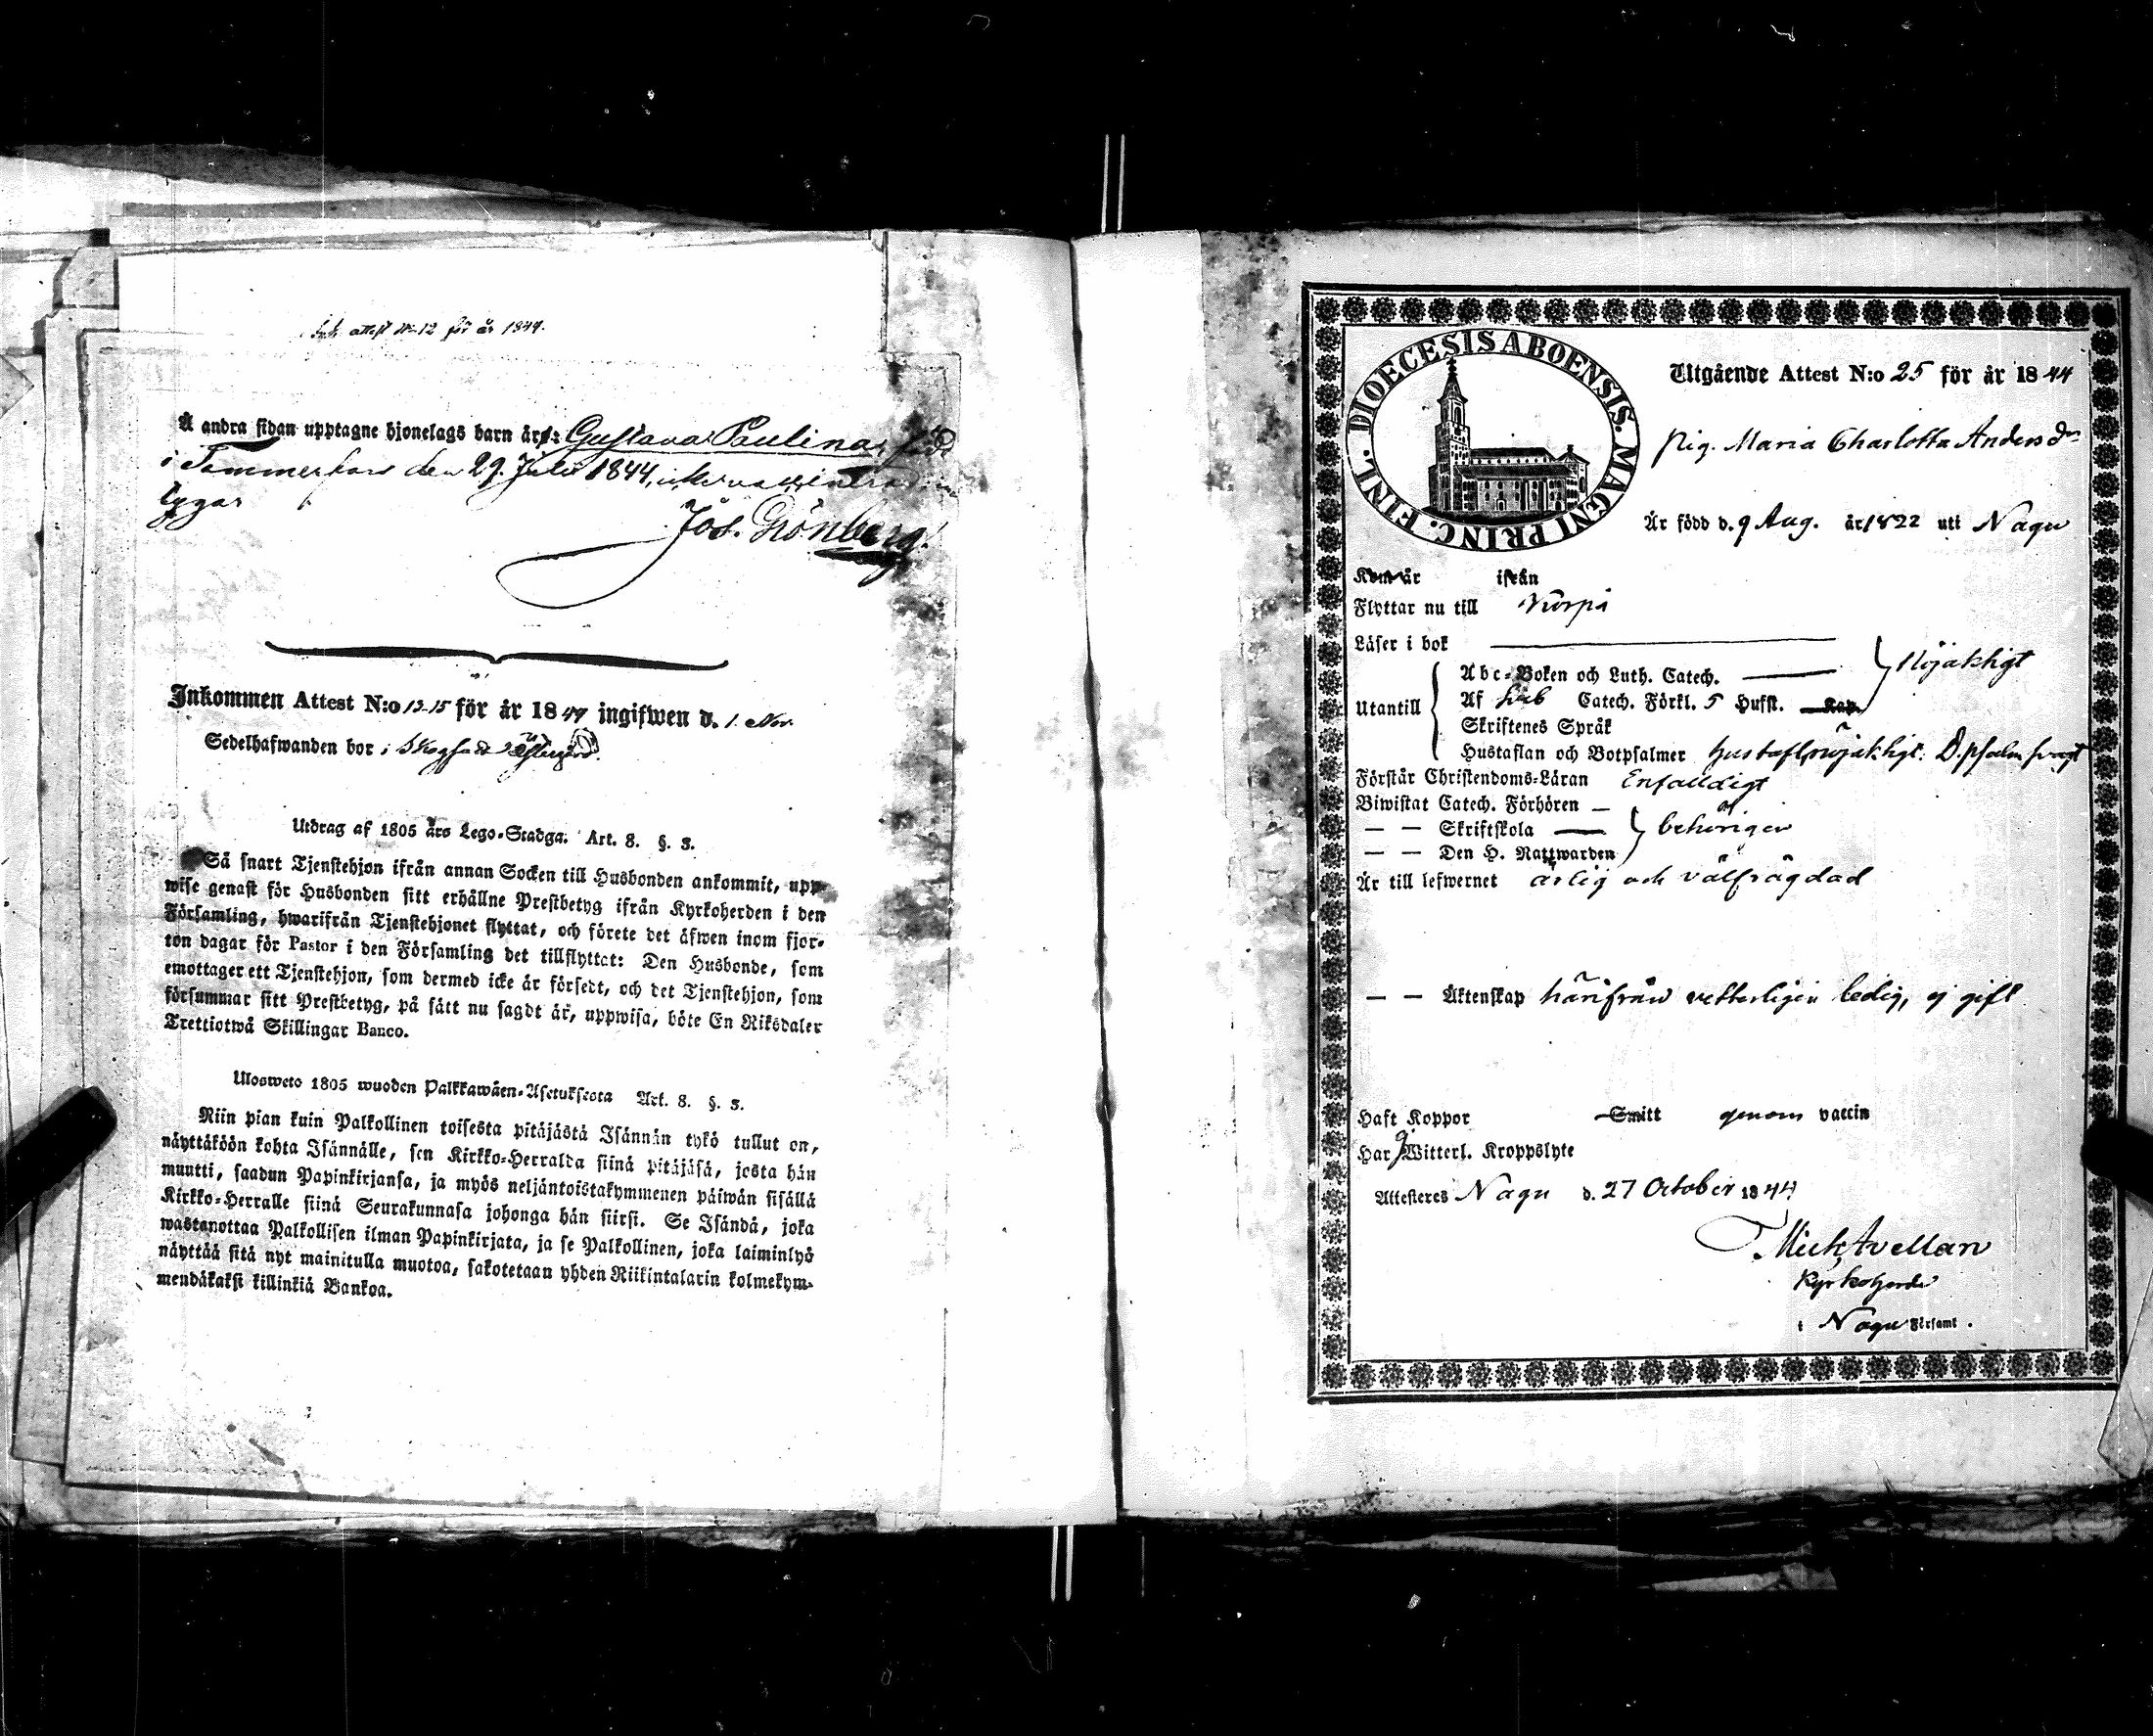 attest No 12 för år 1844.
Å andra sidan upptagne hjonelags barn äro: Gustava Paulina, född
i Tammerfors den 29. Julii 1844,
lyggar
Jos. Grönberg.
Inkommen Attest N:o 13-15 för år 1844 ingifwen d. 1. Nov.
Sedelhafwanden bor i
Utdrag af 1805 års Lego-Stadga. Art. 8. §. 3.
Så snart Tjenstehjon ifrån annan Socken till Husbonden ankommit, upp-
wise genast för Husbonden sitt erhållne Prestbetyg ifrån Kyrkoherden i den
Församling, hwarifrån Tjenstehjonet flyttat, och förete det äfwen inom fjor-
ton dagar för Pastor i den Församling det tillflyttat: Den Husbonde, som
emottager ett Tjenstehjon, som dermed icke är försedt, och det Tjenstehjon, som
försummar sitt Prestbetyg, på sätt nu sagdt är, uppwisa, böte En Riksdaler
Trettiotwå Skillingar Banco.
Ulosweto 1805 wuoden Palkkawäen-Asetuksesta Art. 8. §. 3.
Niin pian kuin Palkollinen toisesta pitäjästä Isännän tykö tullut on,
näyttäköön kohta Isännälle, sen Kirkko-Herralda siinä pitäjäsä, josta hän
muutti, saadun Papinkirjansa, ja myös neljäntoistakymmenen päiwän sisällä
Kirkko-Herralle siinä Seurakunnasa johonga hän siirsi. Se Isändä, joka
wastanottaa Palkollisen ilman Papinkirjata, ja se Palkollinen, joka laiminlyö
näyttää sitä nyt mainitulla muotoa, sakotetaan yhden Riikintalarin kolmekym-
mendäkaksi killinkiä Bankoa.
DIOECESIS ABOENSIS. MAGNI PRINC. FINL.
Utgående Attest N:o 25 för år 1844
Pig. Maria Charlotta Andersdr
Är född d. 9 Aug. år 1822 uti Nagu
Kom år ifrån
Flyttar nu till Korpo
Läser i bok
Abc-Boken och Luth. Catech. Nöjaktigt
Utantill Af Catech. Förkl. 5 Hufst. Kap.
Skriftenes Språk
Hustaflan och Botpsalmer hustafl. nöjaktigt. B.psalm. svagt
Förstår Christendoms-Läran Enfaldigt
Biwistat Catech. Förhören —
— — Skriftskola behörigen
— — Den H. Nattwarden
Är till lefwernet ärlig och välfrägdad
— — Äktenskap härifrån vetterligen ledig, ej gift
Haft Koppor Smitt genom vaccin
Har ej Witterl. Kroppslyte
Attesteres Nagu d. 27 October 1844
Mich Avellan
Kyrkoherde
i Nagu Församl.